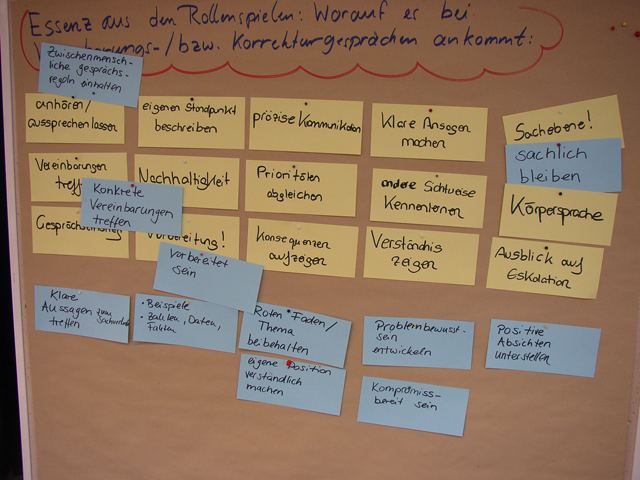 Essenz aus den Rollenspielen: Worauf es bei
-/bzw. Korrekturgesprächen ankommt:
Zwischenmensch-
liche gesprächs-
regeln einhalten
anhören/
aussprechen lassen
eigenen Standpunkt
beschreiben
präzise Kommunikation
Klare Ansagen
machen
Sachebene!
sachlich
bleiben
Vereinbarungen
treff
Konkrete
Vereinbarungen
treffen
Nachhaltigkeit
Prioritäten
abgleichen
andere Sichtweise
Kennenlernen
Körpersprache
Vorbereitung!
Vorbereitet
sein
Konsequenzen
aufzeigen
Verständnis
zeigen
Ausblick auf
Eskalation
Klare
Aussagen zum
treffen
• Beispiele
• Zahlen, Daten,
Fakten
Roten Faden/
Thema
beibehalten
Problembewusst-
sein
entwickeln
Positive
Absichten
unterstellen
eigene Position
verständlich
machen
Kompromiss-
bereit sein